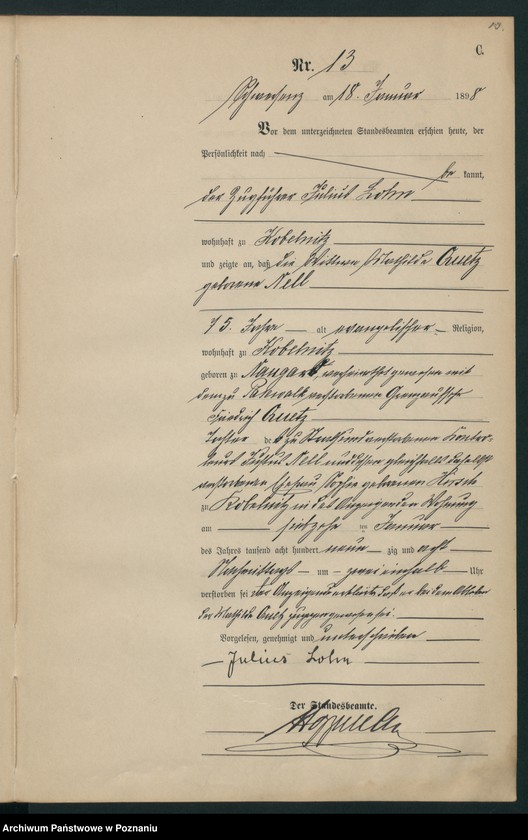 13.
C.
Nr. 13
Schwersenz am 18. Januar 1898
Vor dem unterzeichneten Standesbeamten erschien heute, der
Persönlichkeit nach
be kannt,
der Zugführer Julius Lohn
wohnhaft zu Kobelnitz
und zeigte an, daß die Wittwe Mathilde
geborene Nell
75 Jahre alt evangelischer Religion,
wohnhaft zu Kobelnitz
geboren zu Naugard, verheirathet gewesen mit
dem zu verstorbenen
Friedrich
Tochter de zu verstorbenen
Nell und dessen gleichfalls daselbst
verstorbenen Ehefrau Sophie geborenen
zu Kobelnitz in des Anzeigenden Wohnung
am siebzehn ten Januar
des Jahres tausend acht hundert neun zig und acht
Nachmittags um zwei einhalb Uhr
verstorben sei der Anzeigende erklärte daß er bei dem
der Mathilde zugegen gewesen sei.
Vorgelesen, genehmigt und unterschrieben
Julius Lohn
Der Standesbeamte.
Archiwum Państwowe w Poznaniu